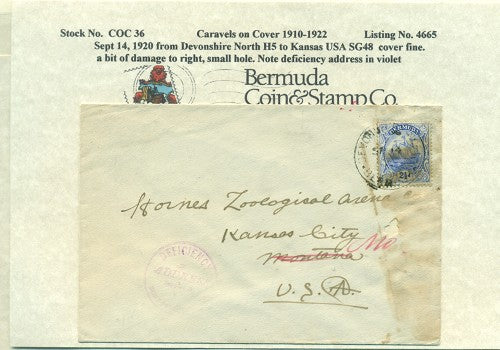 Stock No. COC 36 Caravels on Cover 1910-1922 Listing No. 4665
Sept 14, 1920 from Devonshire North H5 to Kansas USA SG48 cover fine.
a bit of damage to right, small hole. Note deficiency address in violet
Bermuda
Coin & Stamp Co.
BERMUDA
Hornes Zoological Arena
Kansas City Mo
Montana
U.S.A.
DEFICIENCY